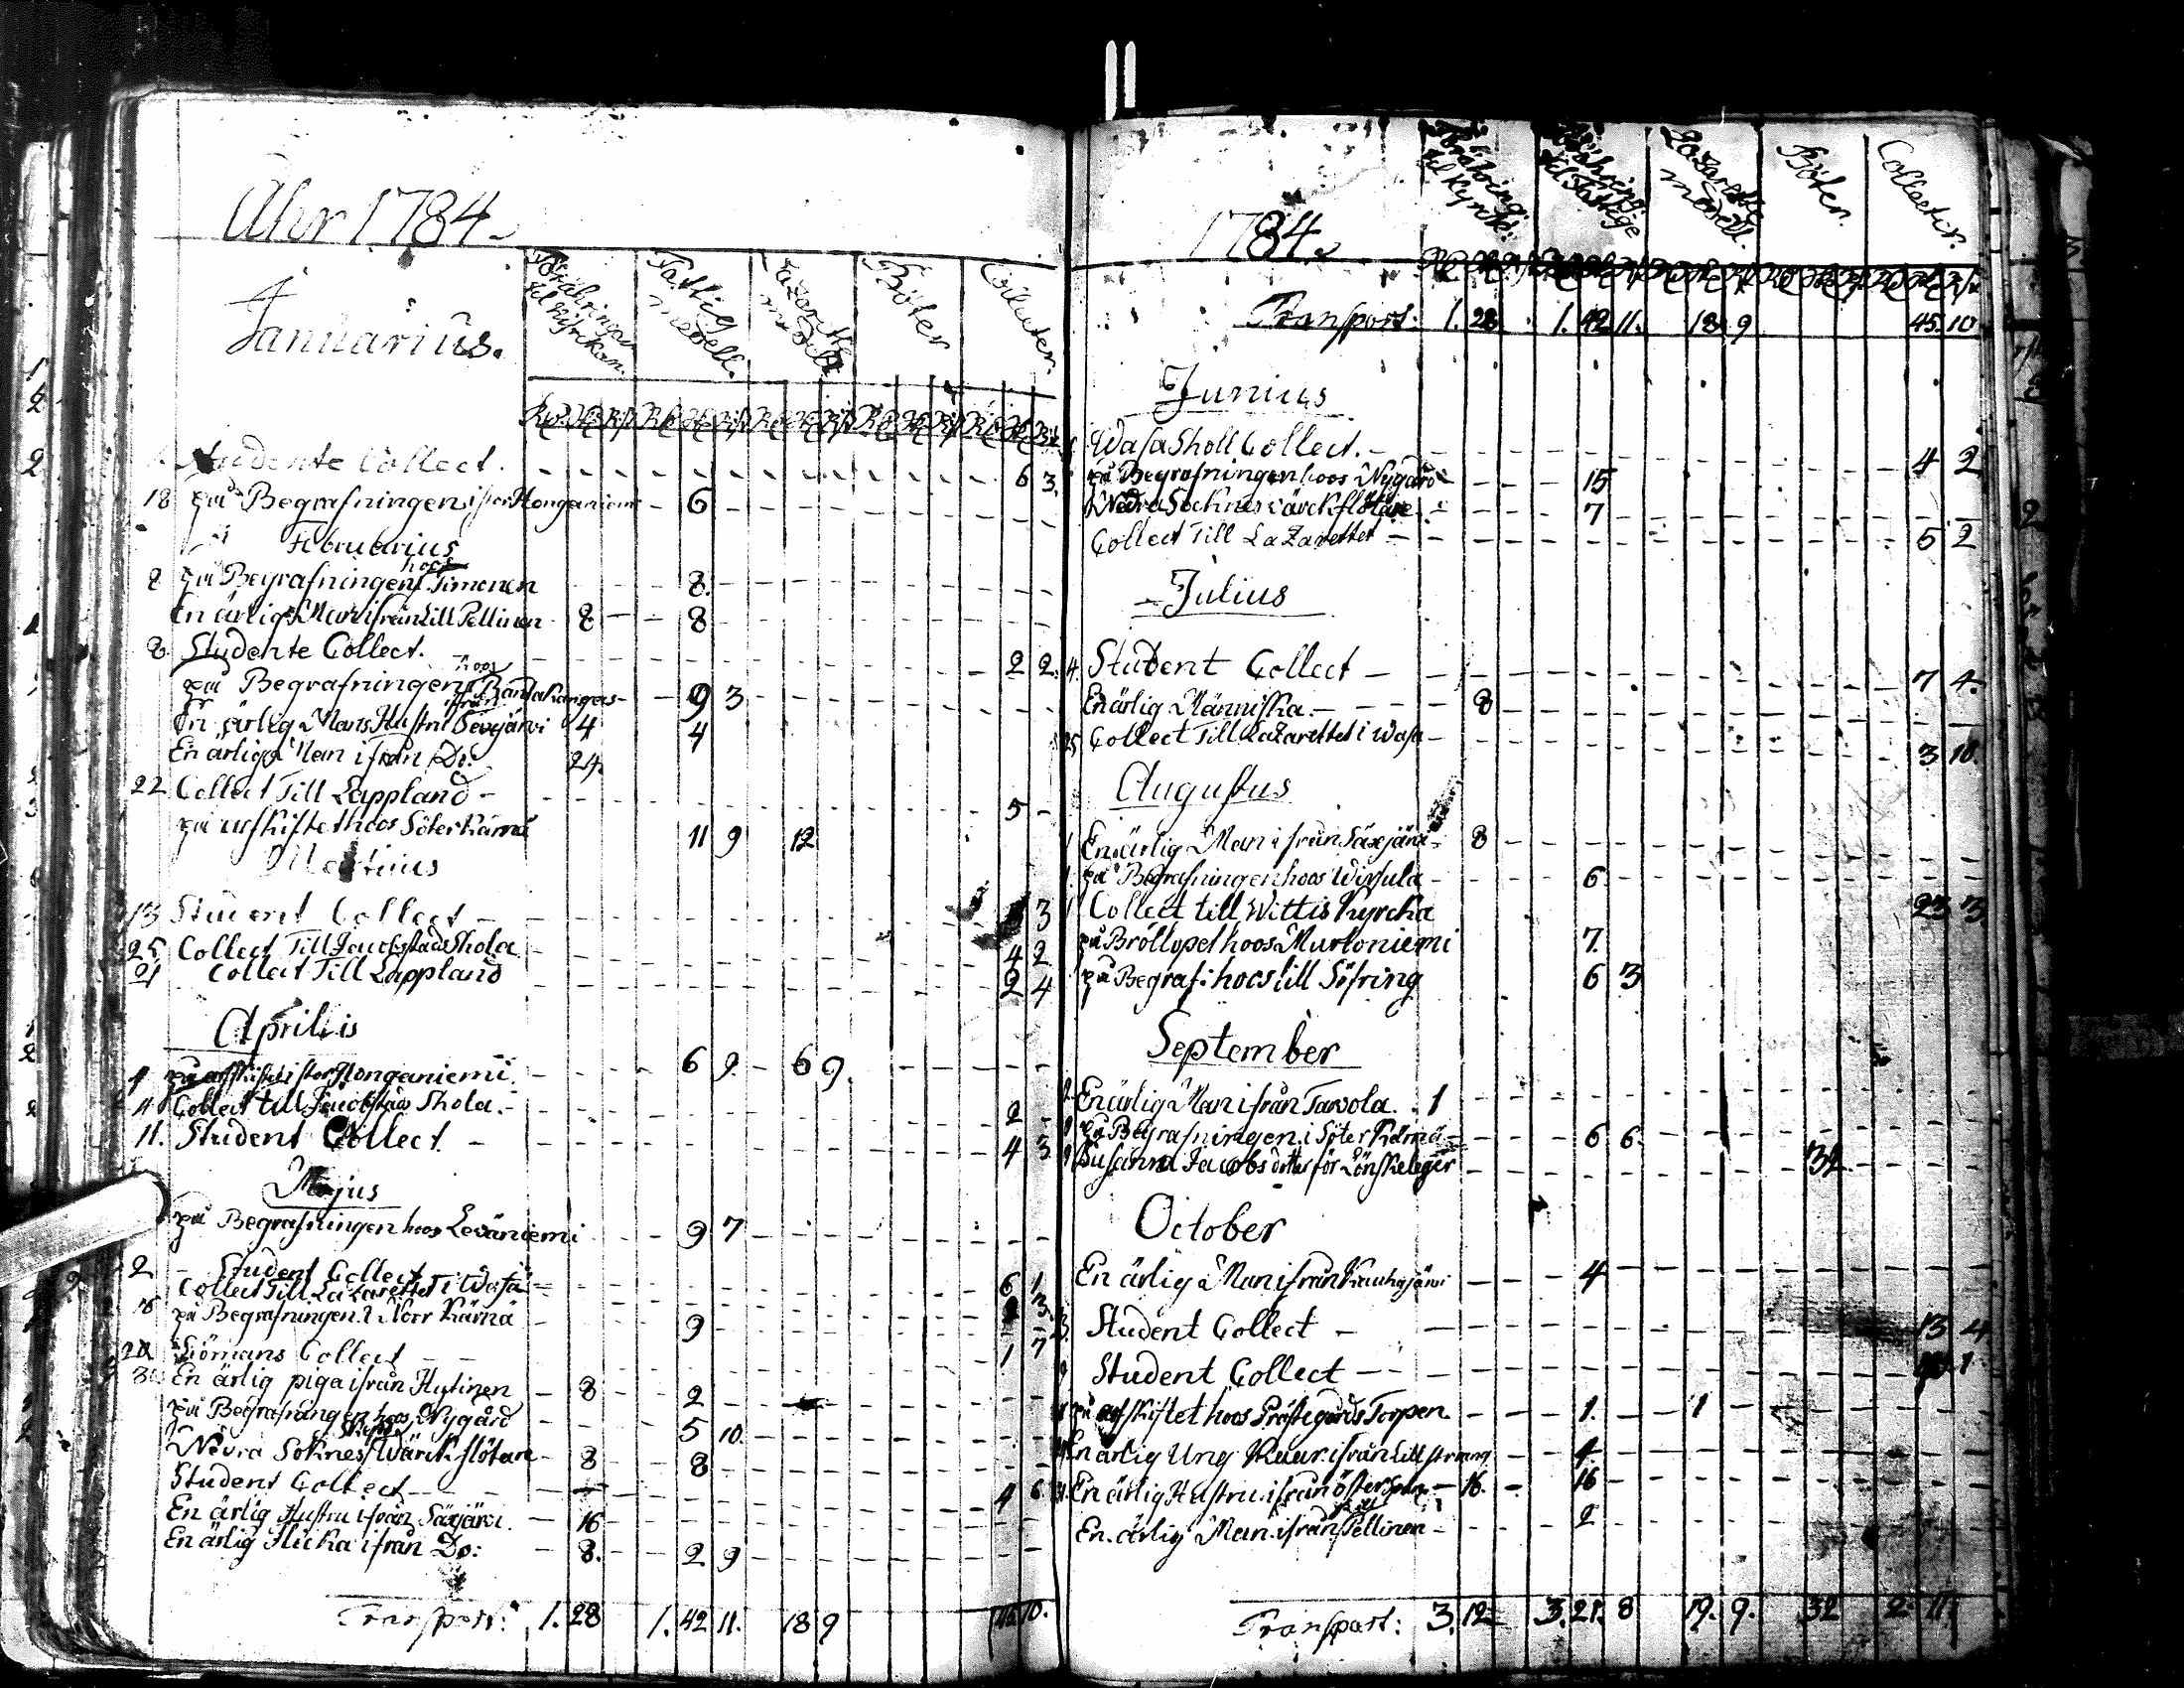 Åhr 1784.
Januarius.
Förähringar til Kyrkan.
Fattig medell.
Lazaretts medell
Böter
Collecter.
Studente Collect. 6 3.
18 på Begrafningen i stor Honganiemi 6
Februarius
8 på Begrafningen hoos Timonen 8.
En ärlig Man ifrån Lill Pellinen 8 8
8 Studente Collect. 2 2.
på Begrafningen hoos Bandakangas 9 3
En ärlig Mans Hustru ifrån Sexjärvi 4 4
En ärlig Man ifrån Do: 24.
22 Collect Till Lappland 5
på arfskiftet hoos Söter Kärnä 11 9 12
Martius
13 Student Collect 3
25 Collect Till Jacobstads Skola 4 2
21 Collect Till Lappland 2 4
Aprilis
4 på arfskiftet i stor Honganiemi. 6 9 6 9.
4 Collect till Jacobstads Skola. 2
11. Student Collect 4 3
Majus
på Begrafningen hoos Leväniemi 9 7
2 Student Collect 6 1
Collect Till Lazarettet i Wasa 3.
16 på Begrafningen i Norr Kärnä 9
20 Sömans Collect 1 7
30 En ärlig piga ifrån Hutinen 8 2
på Begrafningen hoos Nygård 5 10.
Nedra Soknes Wärck flötare 8 8
Student Collect 4 6
En ärlig Hustru ifrån Säxjärvi. 16
En ärlig Flicka ifrån Do: 8. 2 9
Transport: 1. 28 1. 42 11. 18 9 45 10.
1784.
Förähring: til Kyrck:
Förähring til Fattige
Lazaretts medell.
Böter.
Collecter.
Transport: 1. 28 1. 42 11. 18 9 45. 10
Junius
Wasa Skoll Collect. 4 2
på Begrafningen hoos Nygård 15
Nedra Socknes värck flötare 7
Collect Till Lazarettet 5 2
Julius
4. Student Collect 7 4.
En ärlig Människa. 8
25 Collect Till Lazarettet i Wasa 3 10.
Augustus
1 En ärlig Man ifrån Säxejärvi 8
1. på Begrafningen hoos Wirsula 6.
1 Collect till Wittis Kyrcka 23 3
på Bröllopet hoos Murtoniemi 7.
på Begraf: hoos lill Söfring 6 3
September
En ärlig Man ifrån Tavola. 1
på Begrafningen i Söter Kärnä 6 6.
Susanna Jacobs dotter för Lönskeleger 32
October
En ärlig Man ifrån Kauhajärvi 4
Student Collect 13 4
Student Collect 1
på arfskiftet hoos Prästegårds Torpen. 1. 1
En ärlig Ung Kaar. ifrån Lill strang 4
En ärlig Hustru. ifrån öster 16. 16
En ärlig Man. ifrån Pellinen 2
Transport: 3. 12 3. 21. 8 19. 9. 32 2. 11.